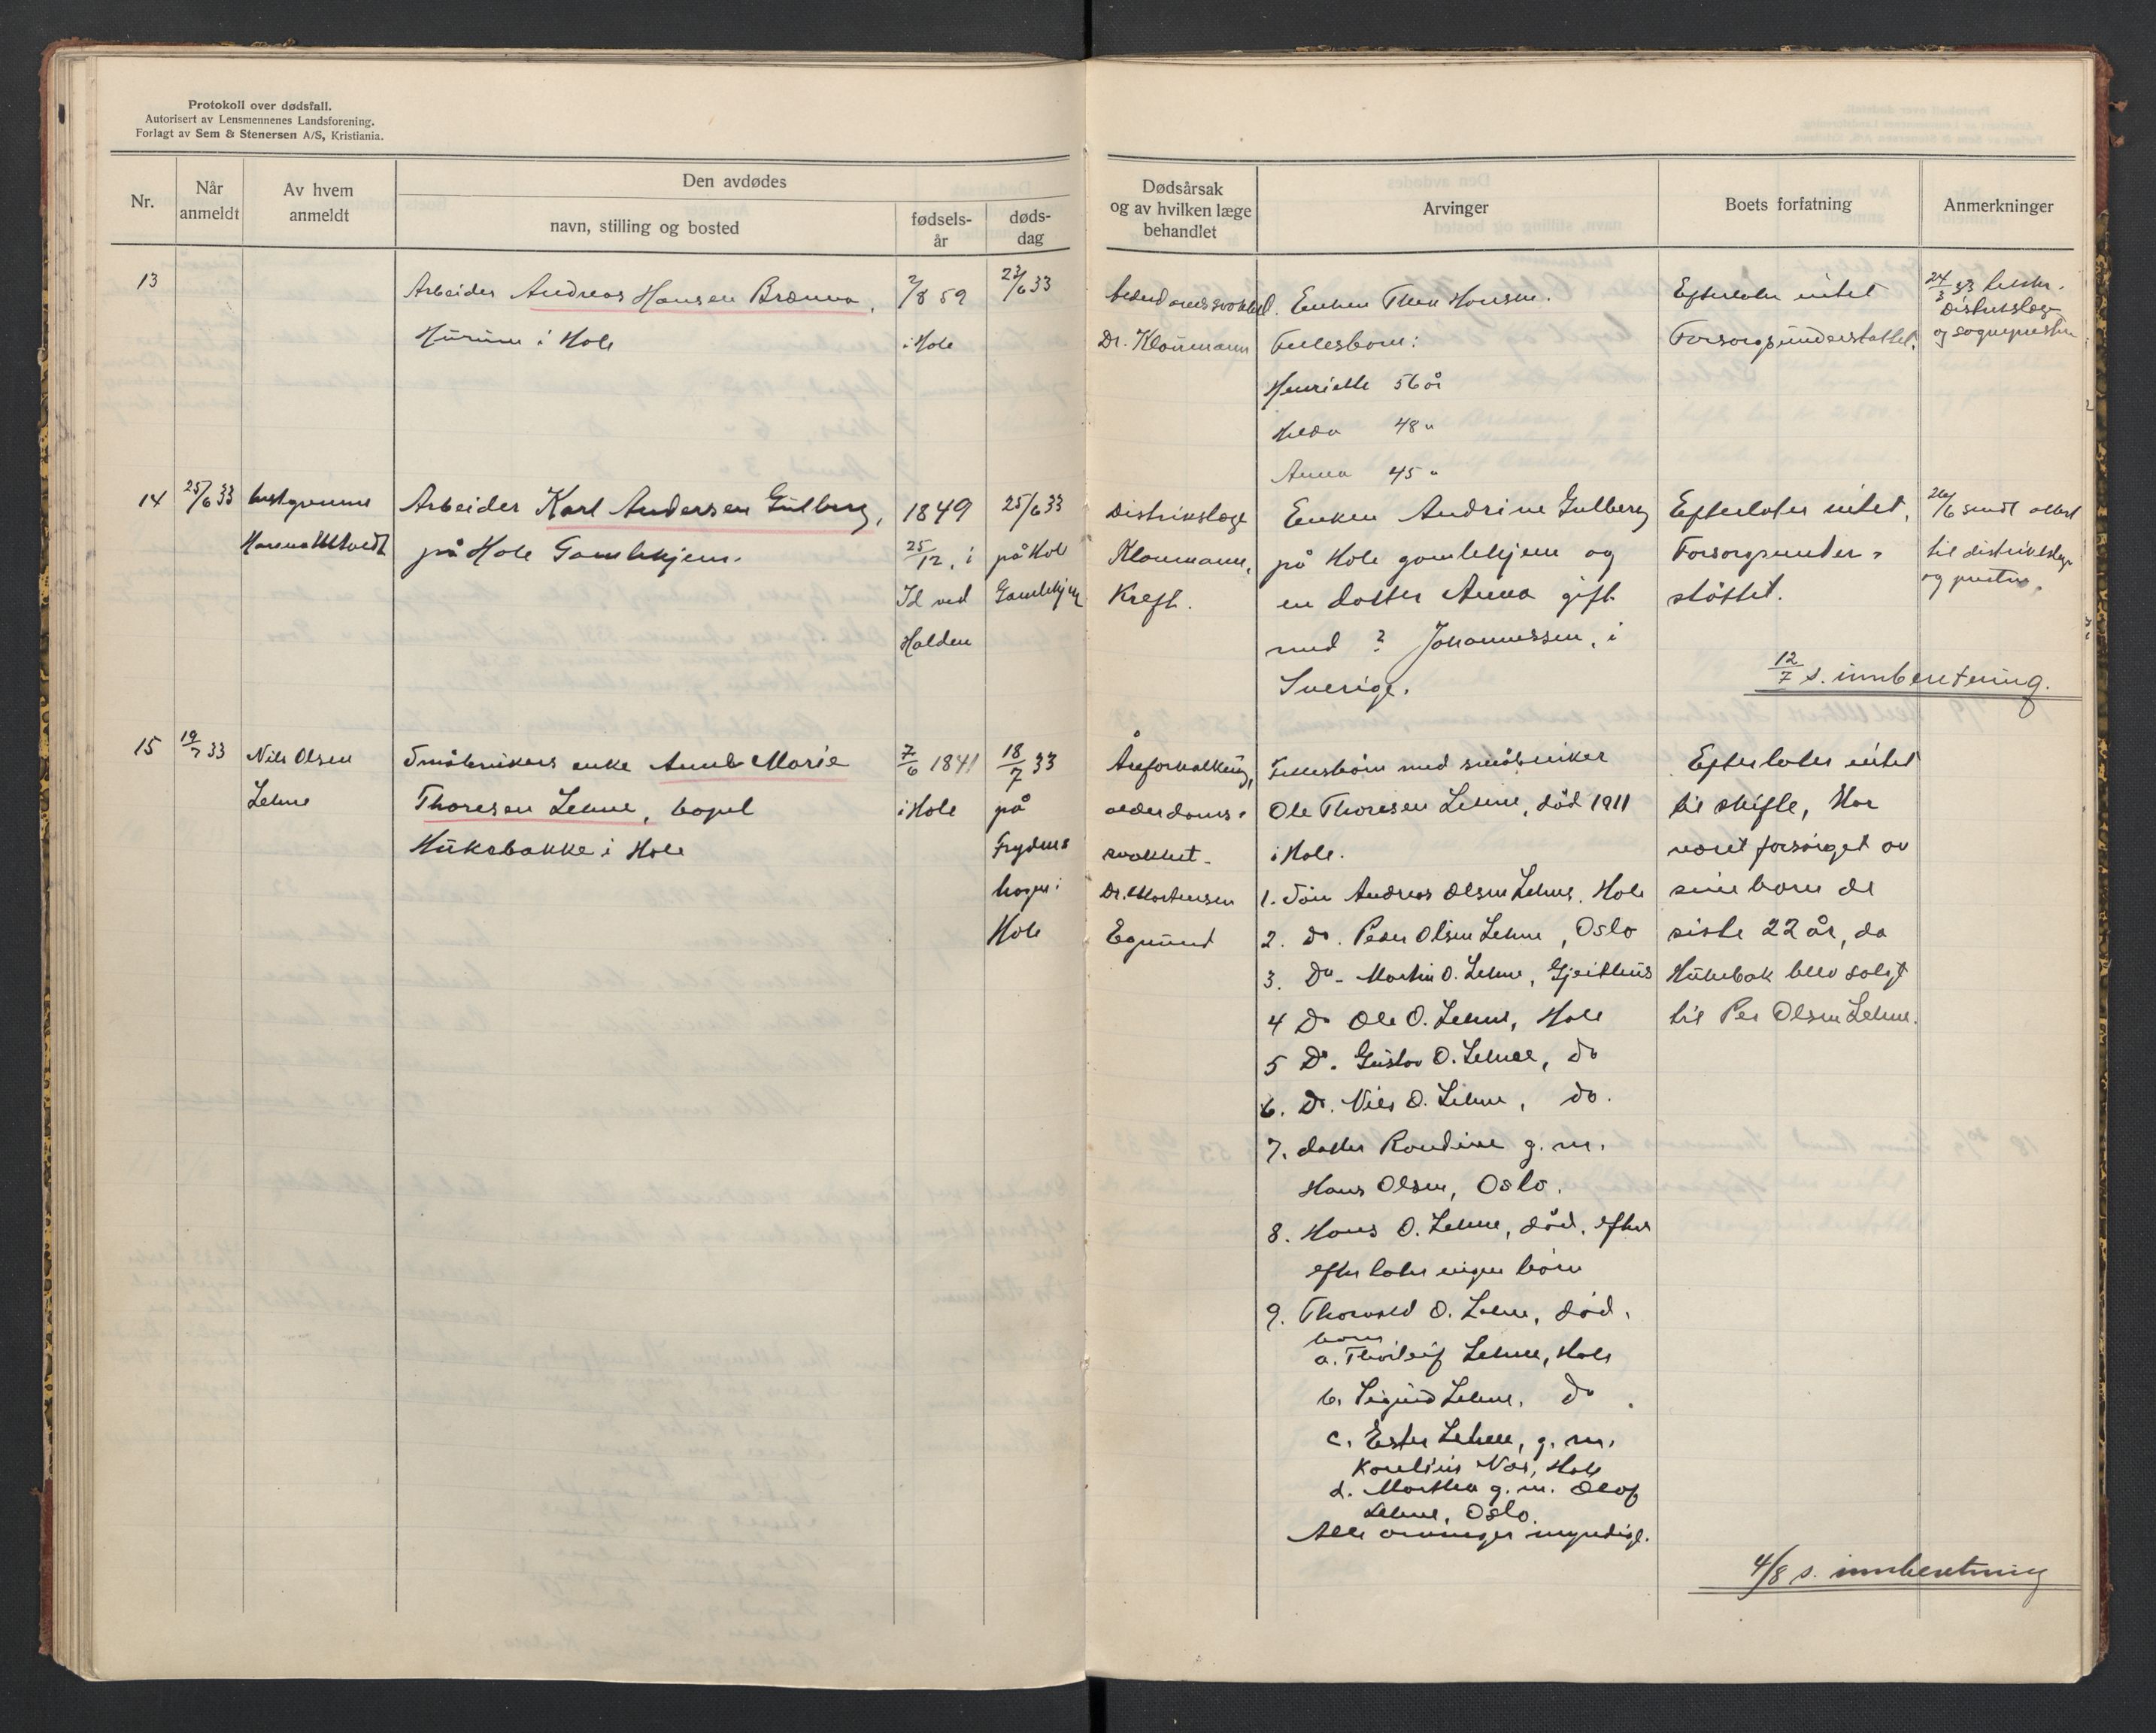 Protokoll over dødsfall.
Autorisert av Lensmennenes Landsforening.
Forlagt av Sem & Stenersen A/S, Kristiania.
Nr.
Når anmeldt
Av hvem anmeldt
Den avdødes
navn, stilling og bosted
fødsels-år
døds-dag
Dødsårsak og av hvilken læge behandlet
Arvinger
Boets forfatning
Anmerkninger
13
Arbeider Andreas Hansen Brænna,
i Hole
2/8 59
i Hole
23/6 33
Dr. Kloumann
Enken Thea Hansen.
Fellesbarn:
Henriette 56 år
Helda 48 "
Anna 45 "
Efterlater intet
Forsorgsunderstøttet.
Distriktslæge
og sognepresten
14
25/6 33
Bestyrerinne
Arbeider Karl Andersen Gulberg,
på Hole Gamlehjem.
1849
25/12, i
Id ved
Halden
25/6 33
på Hole
Gamlehjem
Distriktslæge
Kloumann,
Kreft.
Enken Andrine Gulberg
på Hole gamlehjem og
en datter Anna gift
med ? Johannessen, i
Sverige.
Efterlater intet,
Forsorgsunder-
støttet.
26/6 sendt attest
til distriktslæge
og presten.
12/7 s. innberetning.
15
19/7 33
Nils Olsen
Lehne
Småbrukers enke Anne Marie
Thoresen Lehne, bopel
i Hole
7/6 1841
i Hole
18/7 33
på
Frydens
hagen i
Hole
Åreforkalkning,
alderdoms-
svakhet.
Dr. Mortensen
Egnund
Fellesbarn med småbruker
Ole Thoresen Lehne, død 1911
i Hole.
1. Søn Andreas Olsen Lehne, Hole
2. do. Peder Olsen Lehne, Oslo
3. Do - Martin O. Lehne, Gjeithus
4 Do Ole O. Lehne, Hole
5 Do. Gustav O. Lehne, do
6. Do. Nils O. Lehne, do.
7. datter Randine g. m.
Hans Olsen, Oslo.
8. Hans O. Lehne, død, efter
efterlater ingen barn
9. Thorvald O. Lehne, død.
barn
a. Thorleif Lehne, Hole
b. Sigurd Lehne, do.
c. Ester Lehne, g. m.
Kornelius Næs, Hole
d. Marthea g. m. Olaf
Lehne, Oslo.
Alle arvinger myndige.
Efterlater intet
til skifte, Har
vært forsørget av
sine barn de
siste 22 år, da
blev solgt
til Per Olsen Lehne.
4/8 s. innberetning